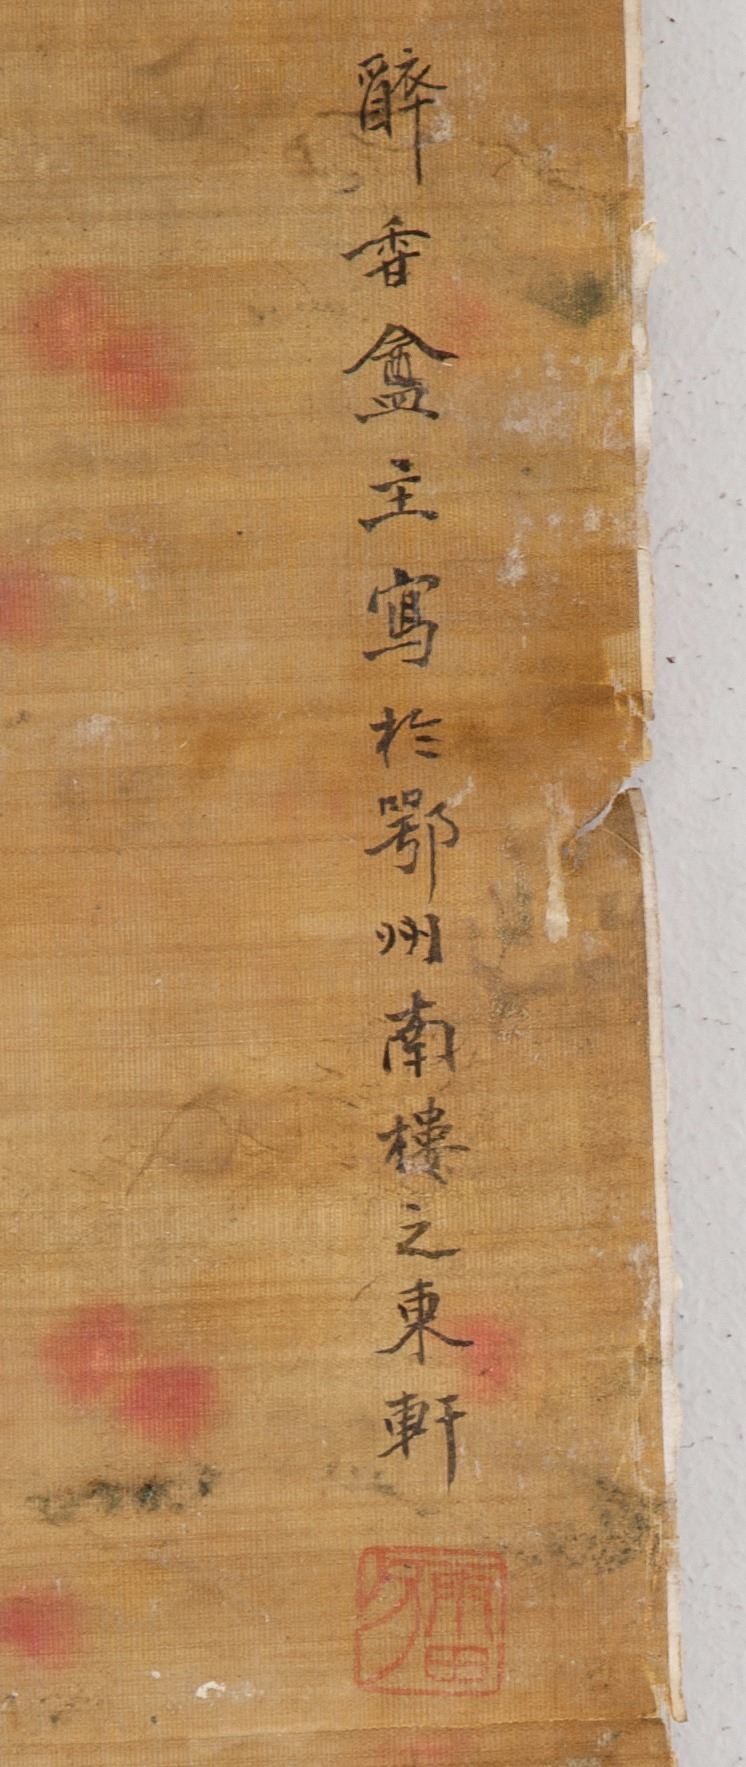 醉香盦主寫於鄂州南樓之東軒